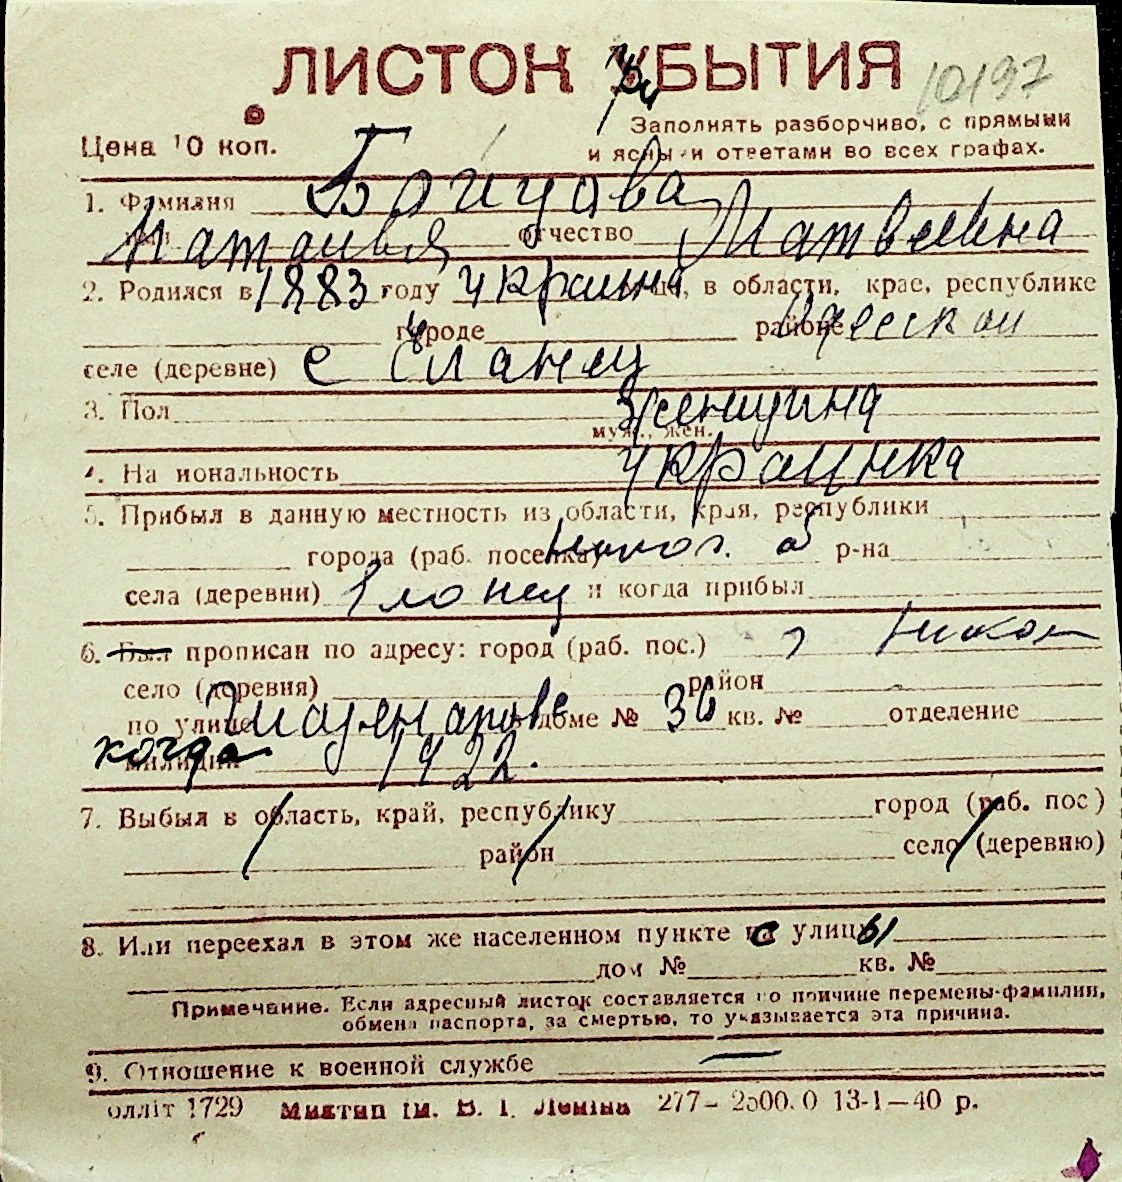 ЛИСТОК УБЫТИЯ
При
10197
Цена 10 коп.
Заполнять разборчиво, с прямыми
и ясными ответами во всех графах.
1. Фамилия Бойцова
Наталья отчество Матвеевна
2. Родился в 1883 году Украина в области, крае, республике
городе районе Одесской
селе (деревне) с Еланец
3. Пол Женщина
муж., жен.
4. Национальность украинка
5. Прибыл в данную местность из области, края, республики
города (раб. поселка) Никол. об р-на
села (деревни) Еланец и когда прибыл
6. Был прописан по адресу: город (раб. пос.) г Никол
село (деревня) район
по улице доме № 36 кв. № отделение
когда милиции 1922.
7. Выбыл в область, край, республику город (раб. пос)
район село (деревню)
8. Или переехал в этом же населенном пункте с улицы
дом № кв. №
Примечание. Если адресный листок составляется по причине перемены фамилии,
обмена паспорта, за смертью, то указывается эта причина.
9. Отношение к военной службе —
олліт 1729 Миктип ім. В. І. Леніна 277— 2500.0 13-1—40 р.